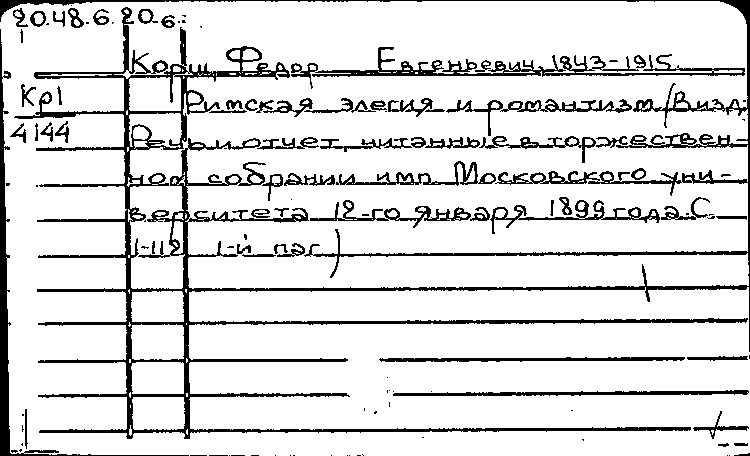 20.48.6.20.6.
Корш, Федор Евгеньевич, 1843-1915.
Кр1
Римская элегия и романтизм (В изд.
4144
Речь и отчет, читанные в торжествен-
ном собрании имп. Московского уни-
верситета 12-го января 1899 года. С.
1-112 1-й паг)